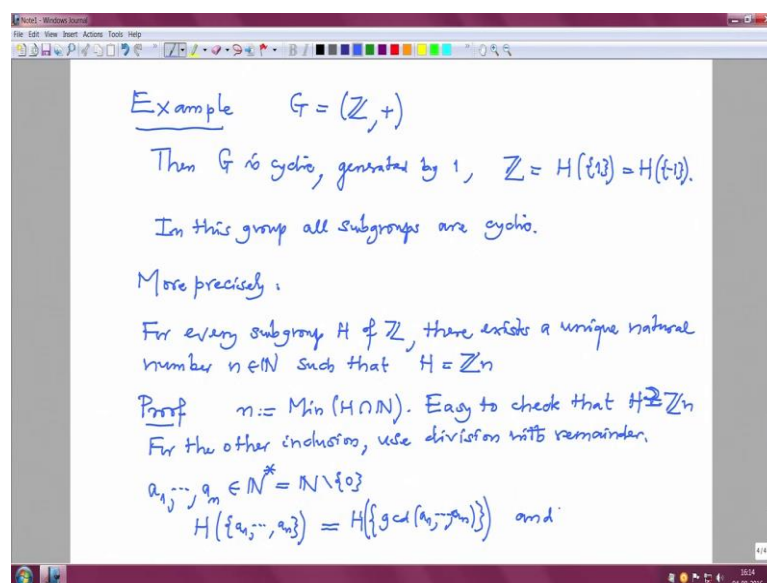 Note1 - Windows Journal
File Edit View Insert Actions Tools Help
Example G = (ℤ, +)
Then G is cyclic, generated by 1, ℤ = H({1}) = H({-1}).
In this group all subgroups are cyclic.
More precisely:
For every subgroup H of ℤ, there exists a unique natural
number n ∈ ℕ such that H = ℤn
Proof n := Min (H ∩ ℕ). Easy to check that H ⊇ ℤn
For the other inclusion, use division with remainder.
a₁, ..., aₘ ∈ ℕ* = ℕ \ {0}
H({a₁, ..., aₙ}) = H({gcd(a₁, ..., aₘ)}) and
4/4
16:14